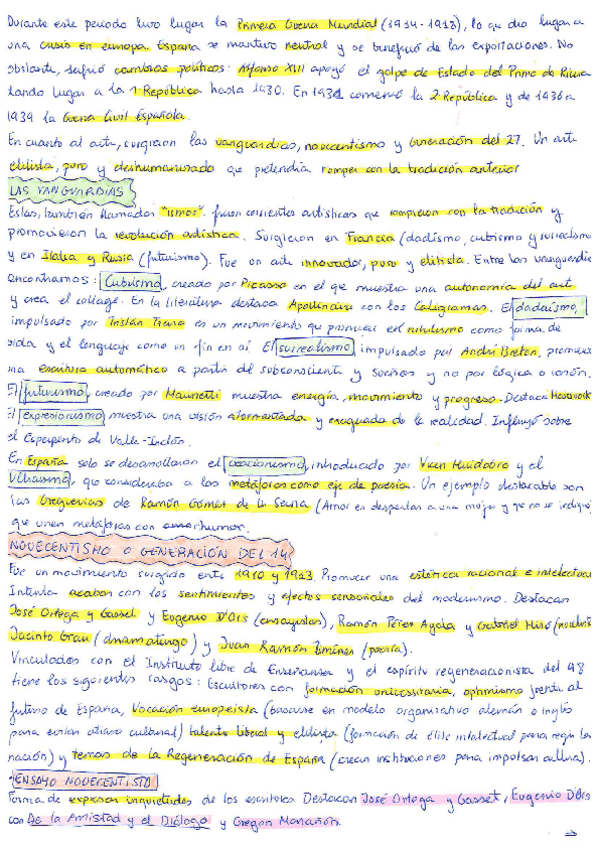 Durante este periodo tuvo lugar la Primera Guerra Mundial (1914-1918), lo que dio lugar a
una crisis en europa. España se mantuvo neutral y se benefició de las exportaciones. No
obstante, sufrió cambios políticos: Alfonso XIII apoyó el golpe de Estado del Primo de Rivera
dando lugar a la 1 República hasta 1930. En 1931 comenzó la 2 República y de 1936 a
1939 la Guerra Civil Española.
En cuanto al arte, surgieron las vanguardias, novecentismo y Generación del 27. Un arte
elitista, puro y deshumanizado que pretendía romper con la tradición anterior
LAS VANGUARDIAS
Estas, también llamadas "ismos", fueron corrientes artísticas que rompieron con la tradición y
promovieron la revolución artística. Surgieron en Francia (dadísmo, cubismo y surrealismo
y en Italia y Rusia (futurismo). Fue un arte innovador, puro y elitista. Entre las vanguardias
encontramos: Cubismo, creado por Picasso en el que muestra una autonomía del art
y crea el collage. En la literatura destaca Apollinaire con los Caligramas. El dadaísmo,
impulsado por Tristán Tzara es un movimiento que promueve el nihilismo como forma de
vida y el lenguaje como un fin en sí. El surrealismo impulsado por André Breton, promueve
una escritura automática a partir del subconsciente y sueños y no por lógica o razón.
El futurismo, creado por Marinetti muestra energía, movimiento y progreso. Destaca
El expresionismo muestra una visión atormentada y exagerada de la realidad. Influyó sobre
el Esperpento de Valle-Inclán.
En España solo se desarrollaron el creacionismo, introducido por Vicen Huidobro y el
Ultraismo, que consideraba a las metáforas como eje de poesía. Un ejemplo destacable son
las Greguerías de Ramón Gómez de la Serna (Amor es despertar a una mujer y que no se indigne)
que unen metáforas con humor.
NOVECENTISMO O GENERACIÓN DEL 14
Fue un movimiento surgido entre 1910 y 1913. Promueve una estética racional e intelectual
Intenta acabar con los sentimientos y efectos sensoriales del modernismo. Destacan
José Ortega y Gasset y Eugenio D'Ors (ensayistas), Ramón Pérez Ayala y Gabriel Miró (novelist
Jacinto Grau (dramaturgo) y Juan Ramón Jiménez (poesía).
Vinculados con el Instituto libre de Enseñanza y el espíritu regeneracionista del 98
tiene los siguientes rasgos: Escritores con formación universitaria, optimismo frente al
futuro de España, Vocación europeísta (basarse en modelo organizativo alemán o inglés
para evitar atraso cultural) talante liberal y elitista (formación de élite intelectual para regir la
nación) y temas de la Regeneración de España (crean instituciones para impulsar cultura).
ENSAYO NOVECENTISTA
Forma de expresar inquietudes de los escritores. Destacan José Ortega y Gasset, Eugenio D'Ors
con De la Amistad y el Diálogo y Gregori Marañón.